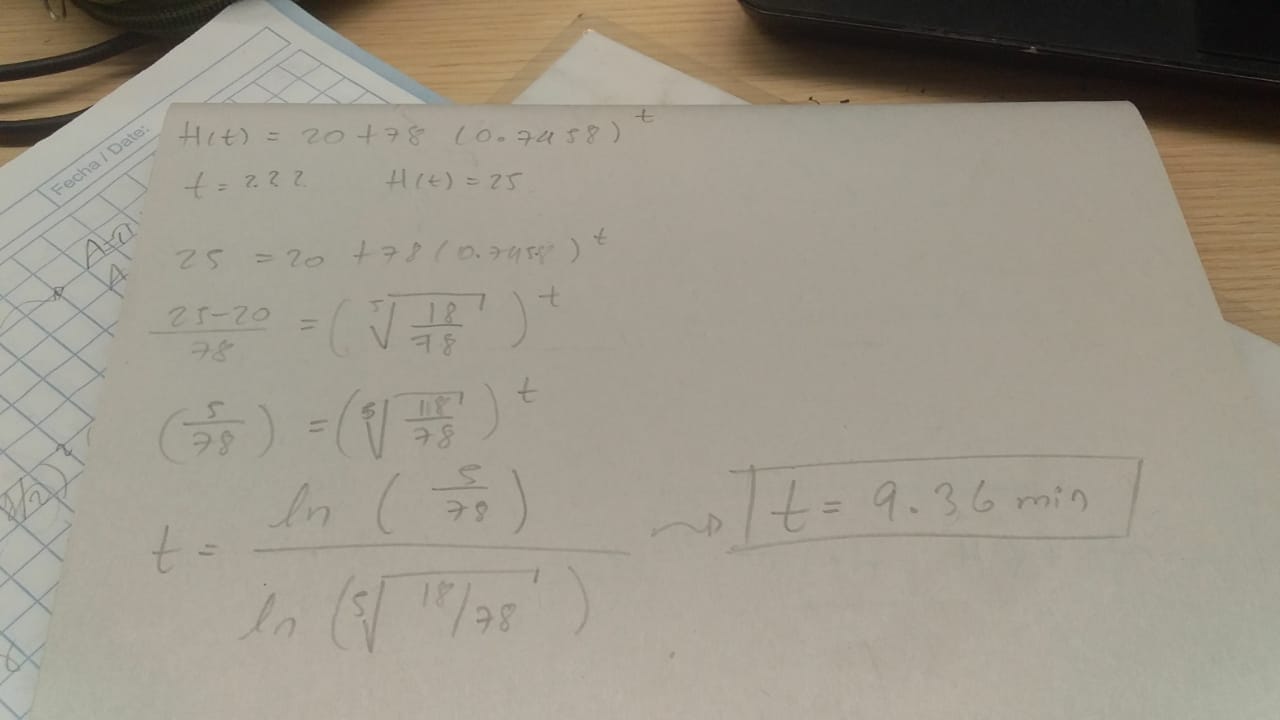 Fecha / Date:
H(t) = 20 + 78 (0.7458)^t
t = ??? H(t) = 25
25 = 20 + 78 (0.7458)^t
25-20/78 = (⁵√18/78)^t
(5/78) = (⁵√18/78)^t
t = ln (5/78) / ln (⁵√18/78) → t = 9.36 min